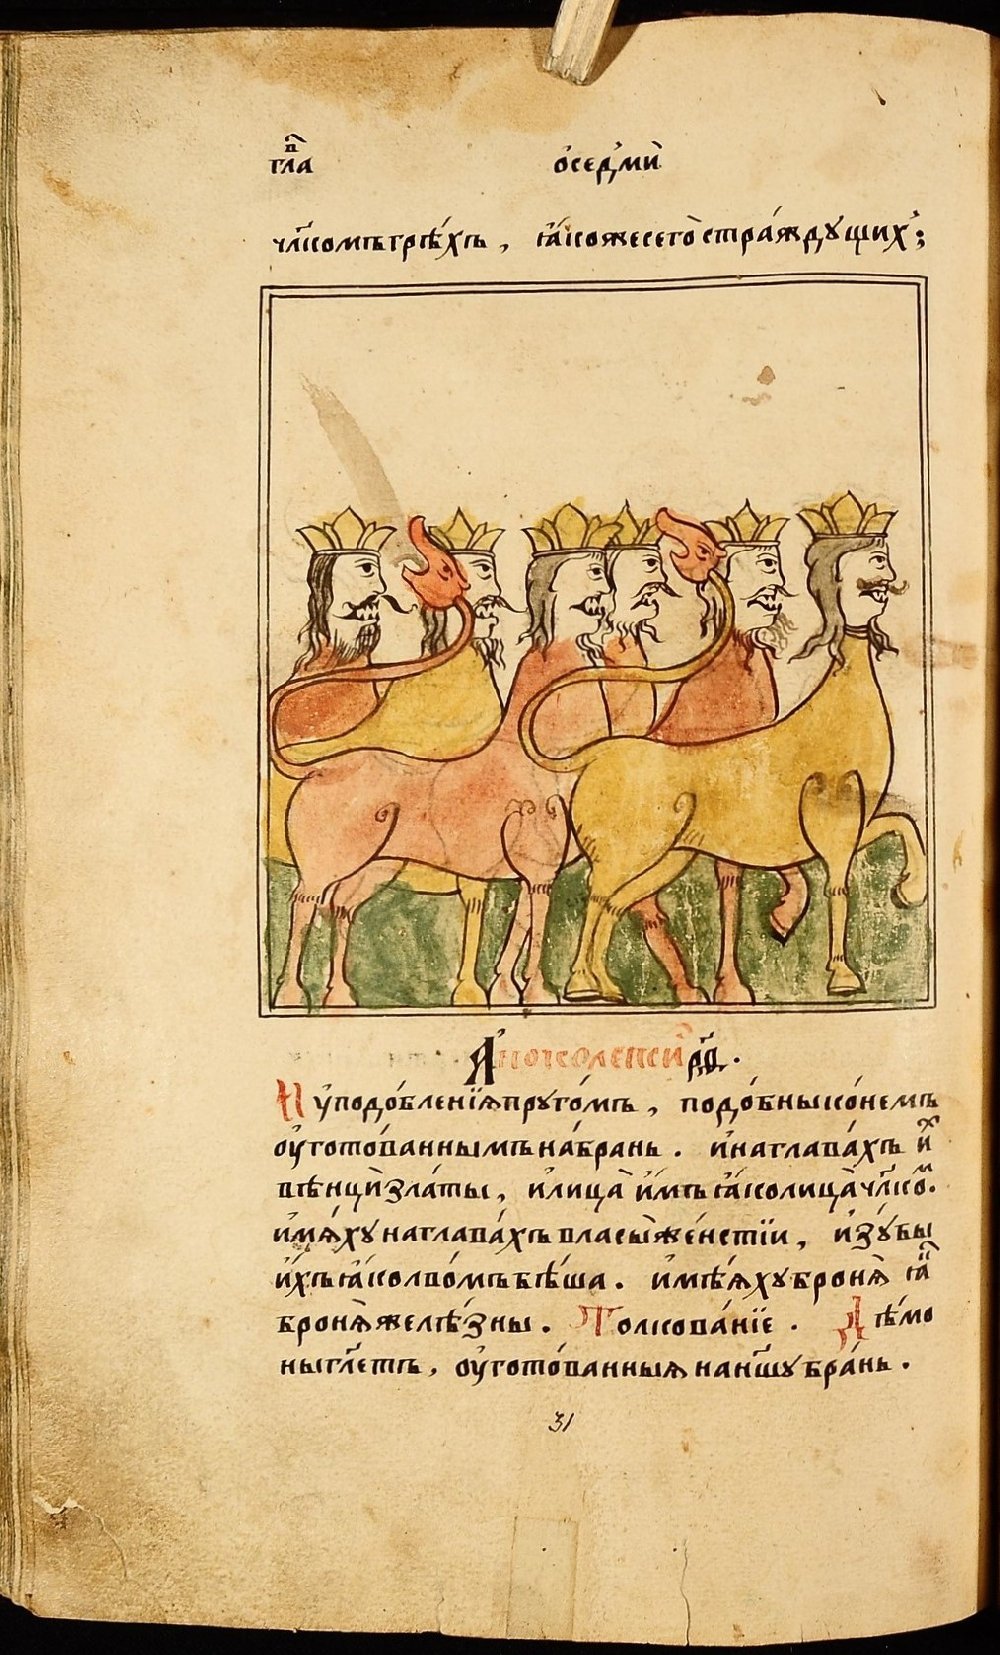 гла в҃
ѻ҆седми́
чл҃комъ грѣ́хъ, ꙗ҆́коже сего̀ стра́ждущих;
А҆покалеѱи рв҃.
И у҆подо́бленїѧ пруго́мъ, подо́бны ко́немъ
ѹ҆гото́ваннымъ на́брань. и҆ на глава́хъ и҆х
вѣнцы̀ зла́ты, и҆ лица̀ и҆́мъ ꙗ҆́ко лица̀ чл҃ком.
и҆мѧ́ху на глава́хъ власы̀ же́нстїи, и҆ зꙋ́бы
и҆́хъ ꙗ҆́ко лво́мъ бѣ́ша. и҆мѣ́ѧху бронѧ̀ ꙗ҆к
бронѧ̀ желѣ́зны. Толкова́нїе. Дѣ́мо
ны гл҃етъ, ѹ҆гото́ванныѧ на нш҃у бра́нь.
31